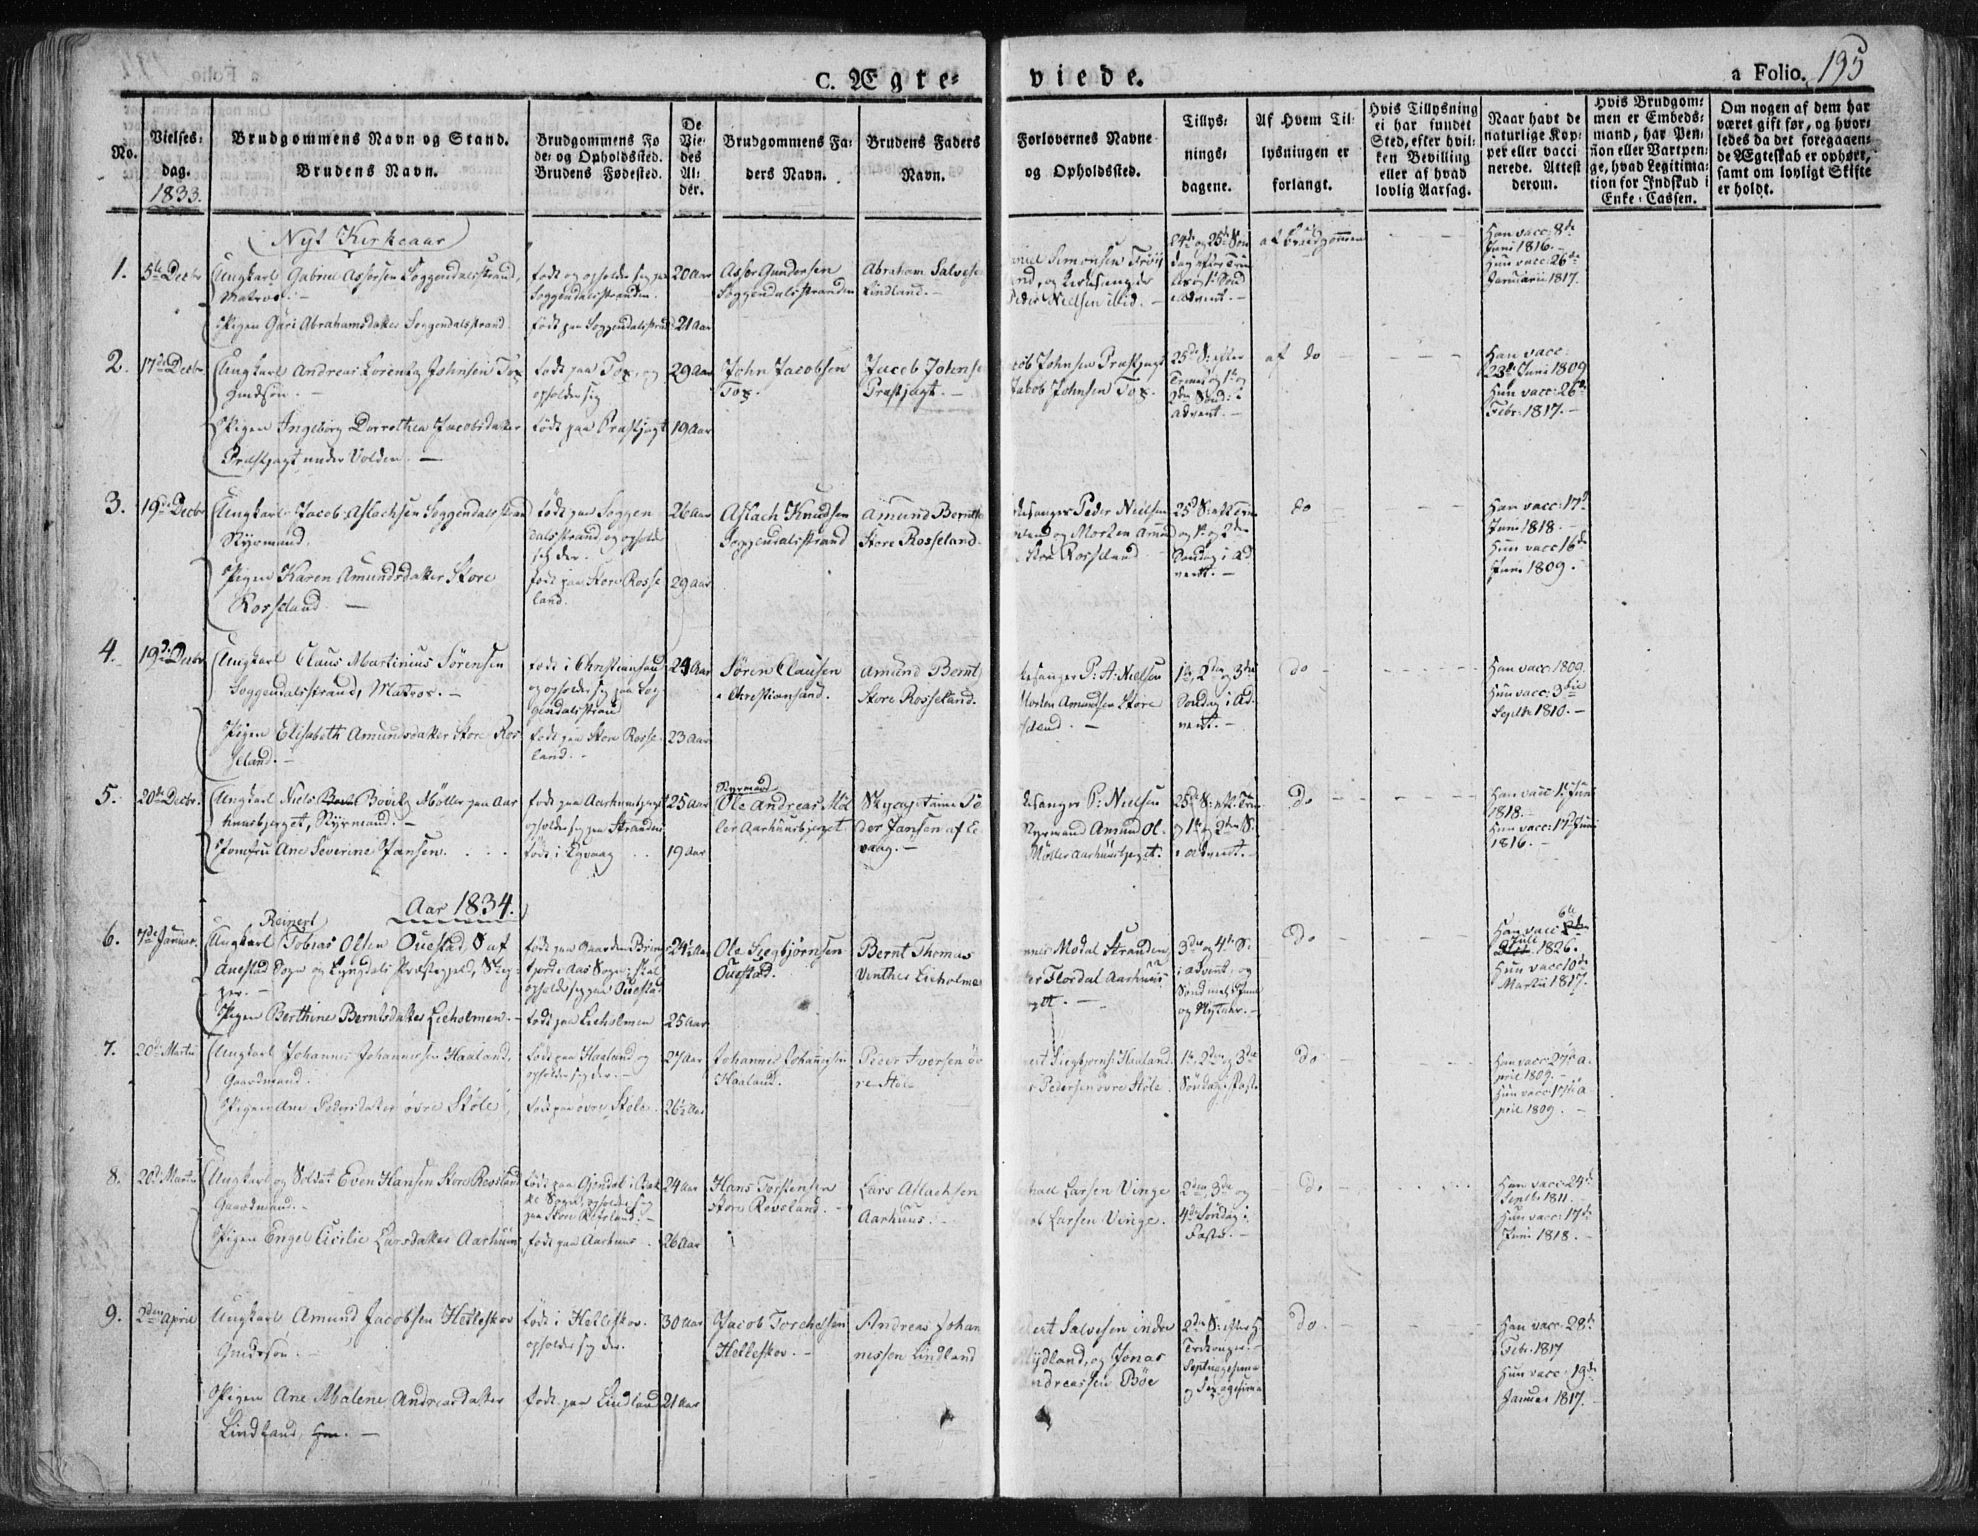 C. Ægte=
viede.
a Folio. 195
No.
Vielses-
dag.
1833.
Brudgommens Navn og Stand.
Brudens Navn.
Brudgommens Fø
de- og Opholdssted.
Brudens Fødested.
De
Vie-
des
Al-
der.
Brudgommens Fa-
ders Navn.
Brudens Faders
Navn.
Forlovernes Navne
og Opholdssted.
Tillys-
nings-
dagene.
Af Hvem Til-
lysningen er
forlangt.
Hvis Tillysning
ei har fundet
Sted, efter hvil-
ken Bevilling
eller af hvad
lovlig Aarsag.
Naar havt de
naturlige Kop-
per eller vacci
nerede. Attest
derom.
Hvis Brudgom-
men er Embeds-
mand, har Pen-
sion eller Vartpen-
ge, hvad Legitima-
tion for Indskud i
Enke-Cassen.
Om nogen af dem har
været gift før, og hvor-
ledes da det foregaaen-
de Ægteskab er ophørt,
samt om lovligt Skifte
er holdt.
Nyt Kirkeaar
1.
5te Decbr
Ungkarl Gabriel Assersen Soggendalsstrand,
Matros.
Pigen Guri Abrahamsdatter Soggendalsstrand
født og opholder sig paa
Soggendalsstranden.
født paa Soggendalsstrand
20 Aar
21 Aar
Asser Gundersen
Soggendalsstranden
Abraham Salvesen
Lindland.
Simonsen
Peder Nielsen ibid.
24de og 25de Søn
dag efter Trin
Advent.
af Brudgommen
Han vacc: 8de
Juni 1816.
Hun vacc: 26de
Januarii 1817.
2.
17de Decbr
Ungkarl Andreas Lorentz Johnsen Tox
Gmdsøn.
Pigen Ingeborg Dorrothea Jacobsdatter
Præstjagt under Volden.
født paa Tox, og
opholder sig
født paa Præstjagt
29 Aar
19 Aar
John Jacobsen
Tox.
Jacob Johnsen
Præstjagt.
Johnsen Præstjagt
Jakob Johnsen Tox.
25de S: efter
Trinit og 1ste og
2den Sønd: i
Advent.
af do
Han vacc:
23de Juni 1809
Hun vacc: 26de
Febr: 1817.
3.
19de Decbr
Ungkarl Jacob Aslachsen Soggendalsstrand
Styrmand.
Pigen Karen Amundsdatter Store
Rosseland.
født paa Soggen
dalsstrand, og opholder
sig der.
født paa Store Rosse
land.
26 Aar
29 Aar
Aslach Knudsen
Soggendalsstrand
Amund Berntsen
Store Rosseland.
Kirkesanger Peder Nielsen
og Morten Amund
Store Rosseland
25de S: eft Trin
og 1ste og 2den
Søndag i Ad
vent.
do
Han vacc: 17de
Juni 1818.
Hun vacc 16de
Juni 1809.
4.
19de Decbr
Ungkarl Claus Martinius Sørensen
Soggendalsstrand, Matros.
Pigen Elisabeth Amundsdatter Store Ros
seland.
født i Christiansand
og opholder sig paa Sog
gendalsstrand
født paa Store Rosse-
land.
24 Aar
23 Aar
Søren Clausen
i Christiansand.
Amund Berntsen
Store Rosseland.
Kirkesanger P: A: Nielsen
Morten Amundsen Store
Rosseland.
1ste, 2den og 3die
Søndag i Ad-
vent.
do
Han vacc: 1809.
Hun vacc: 3die
Septbr 1810.
5.
20de Decbr.
Ungkarl Niels Bovitz Møller paa Aar
huusbjerget, Styrmand.
Jomfru Ane Severine Jansen.
født paa Aarhuusbjerget
opholder sig paa Stranden
født i Egvaag
25 Aar
19 Aar
Styrmand
Ole Andreas Møl
ler Aarhuusbjerget.
Skipcaptaine Pe
der Jansen af E
vaag.
Kirkesanger P: Nielsen
Styrmand Amund Ol.
Møller Aarhuusbjerget.
25de S: eft Trin
og 1ste og 2den S:
i Advent.
Do
Han vacc 1ste Juni
1818.
Hun vacc: 17de Juni
1816.
Aar 1834.
6.
7de Januar.
Reinert
Ungkarl Tobias Olsen Ouestad, S af
Auestad Sogn og Lyngdals Præstegjeld,
Pigen Berthine Berntsdatter Lieholmen.
født paa Gaarden Bring
Aas Sogn, skal
opholde sig paa Ouestad
født paa Lieholmen
24½ Aar
25 Aar
Ole Siegbjørnsen
Ouestad.
Bernt Thomas
Venthes Lieholmen
Modal Stranden,
Flordal Aarhuus
bjerget.
3die og 4de S:
i Advent, og
Sønd mel: Juul
og Nytaar.
Do
Han vacc 6te
Juli 1826.
Hun vacc 10de
Martii 1817.
7.
20de Martii
Ungkarl Johannes Johannessen Haaland,
Gaardmand.
Pigen Ane Pedersdatter øvre Støle
født paa Haaland og
opholder sig der.
født paa øvre Støle
27 Aar
26½ Aar
Johannes Johannesen
Haaland.
Peder Iversen øv
re Støle
Siegbjørns: Haaland.
Pedersen øvre Støle.
1ste, 2den og 3die
Søndag i Fast.
Do
Han vacc: 27de A
pril 1809.
Hun vacc: 17de A
pril 1809.
8.
20de Martii
Ungkarl og Soldat Even Hansen Store Revsland
Gaardmand.
Pigen Engel Cicilie Larsdatter Aarhuus
født paa Gjendal i Bak
ke Sogn, opholder sig
paa Store Refsland.
født paa Aarhuus
24 Aar
26 Aar
Hans Torstensen
Store Reveland.
Lars Aslachsen
Aarhuus.
Larsen Vinge
Larsen Vinge.
2den, 3die og
4de Søndag i
Faste.
do
Han vacc 24de
Septbr 1811.
Hun vacc: 17de
Juni 1818.
9.
2den April
Ungkarl Amund Jacobsen Helleskov
Gmdssøn.
Pigen Ane Malene Andreasdatter
Lindland,
født i Helleskov.
opholder sig der.
født paa Lindland
30 Aar
21 Aar
Jacob Torchelsen
Helleskov.
Andreas Johan
nessen Lindland
Salvesen indre
Mydland, og Jonas
Andreassen Bøe
2den S: efter H
Trekonger.
Septuagesima
og Sexagesima
Do
Han vacc. 28de
Febr. 1817
Hun vacc: 19de
Januar 1817.